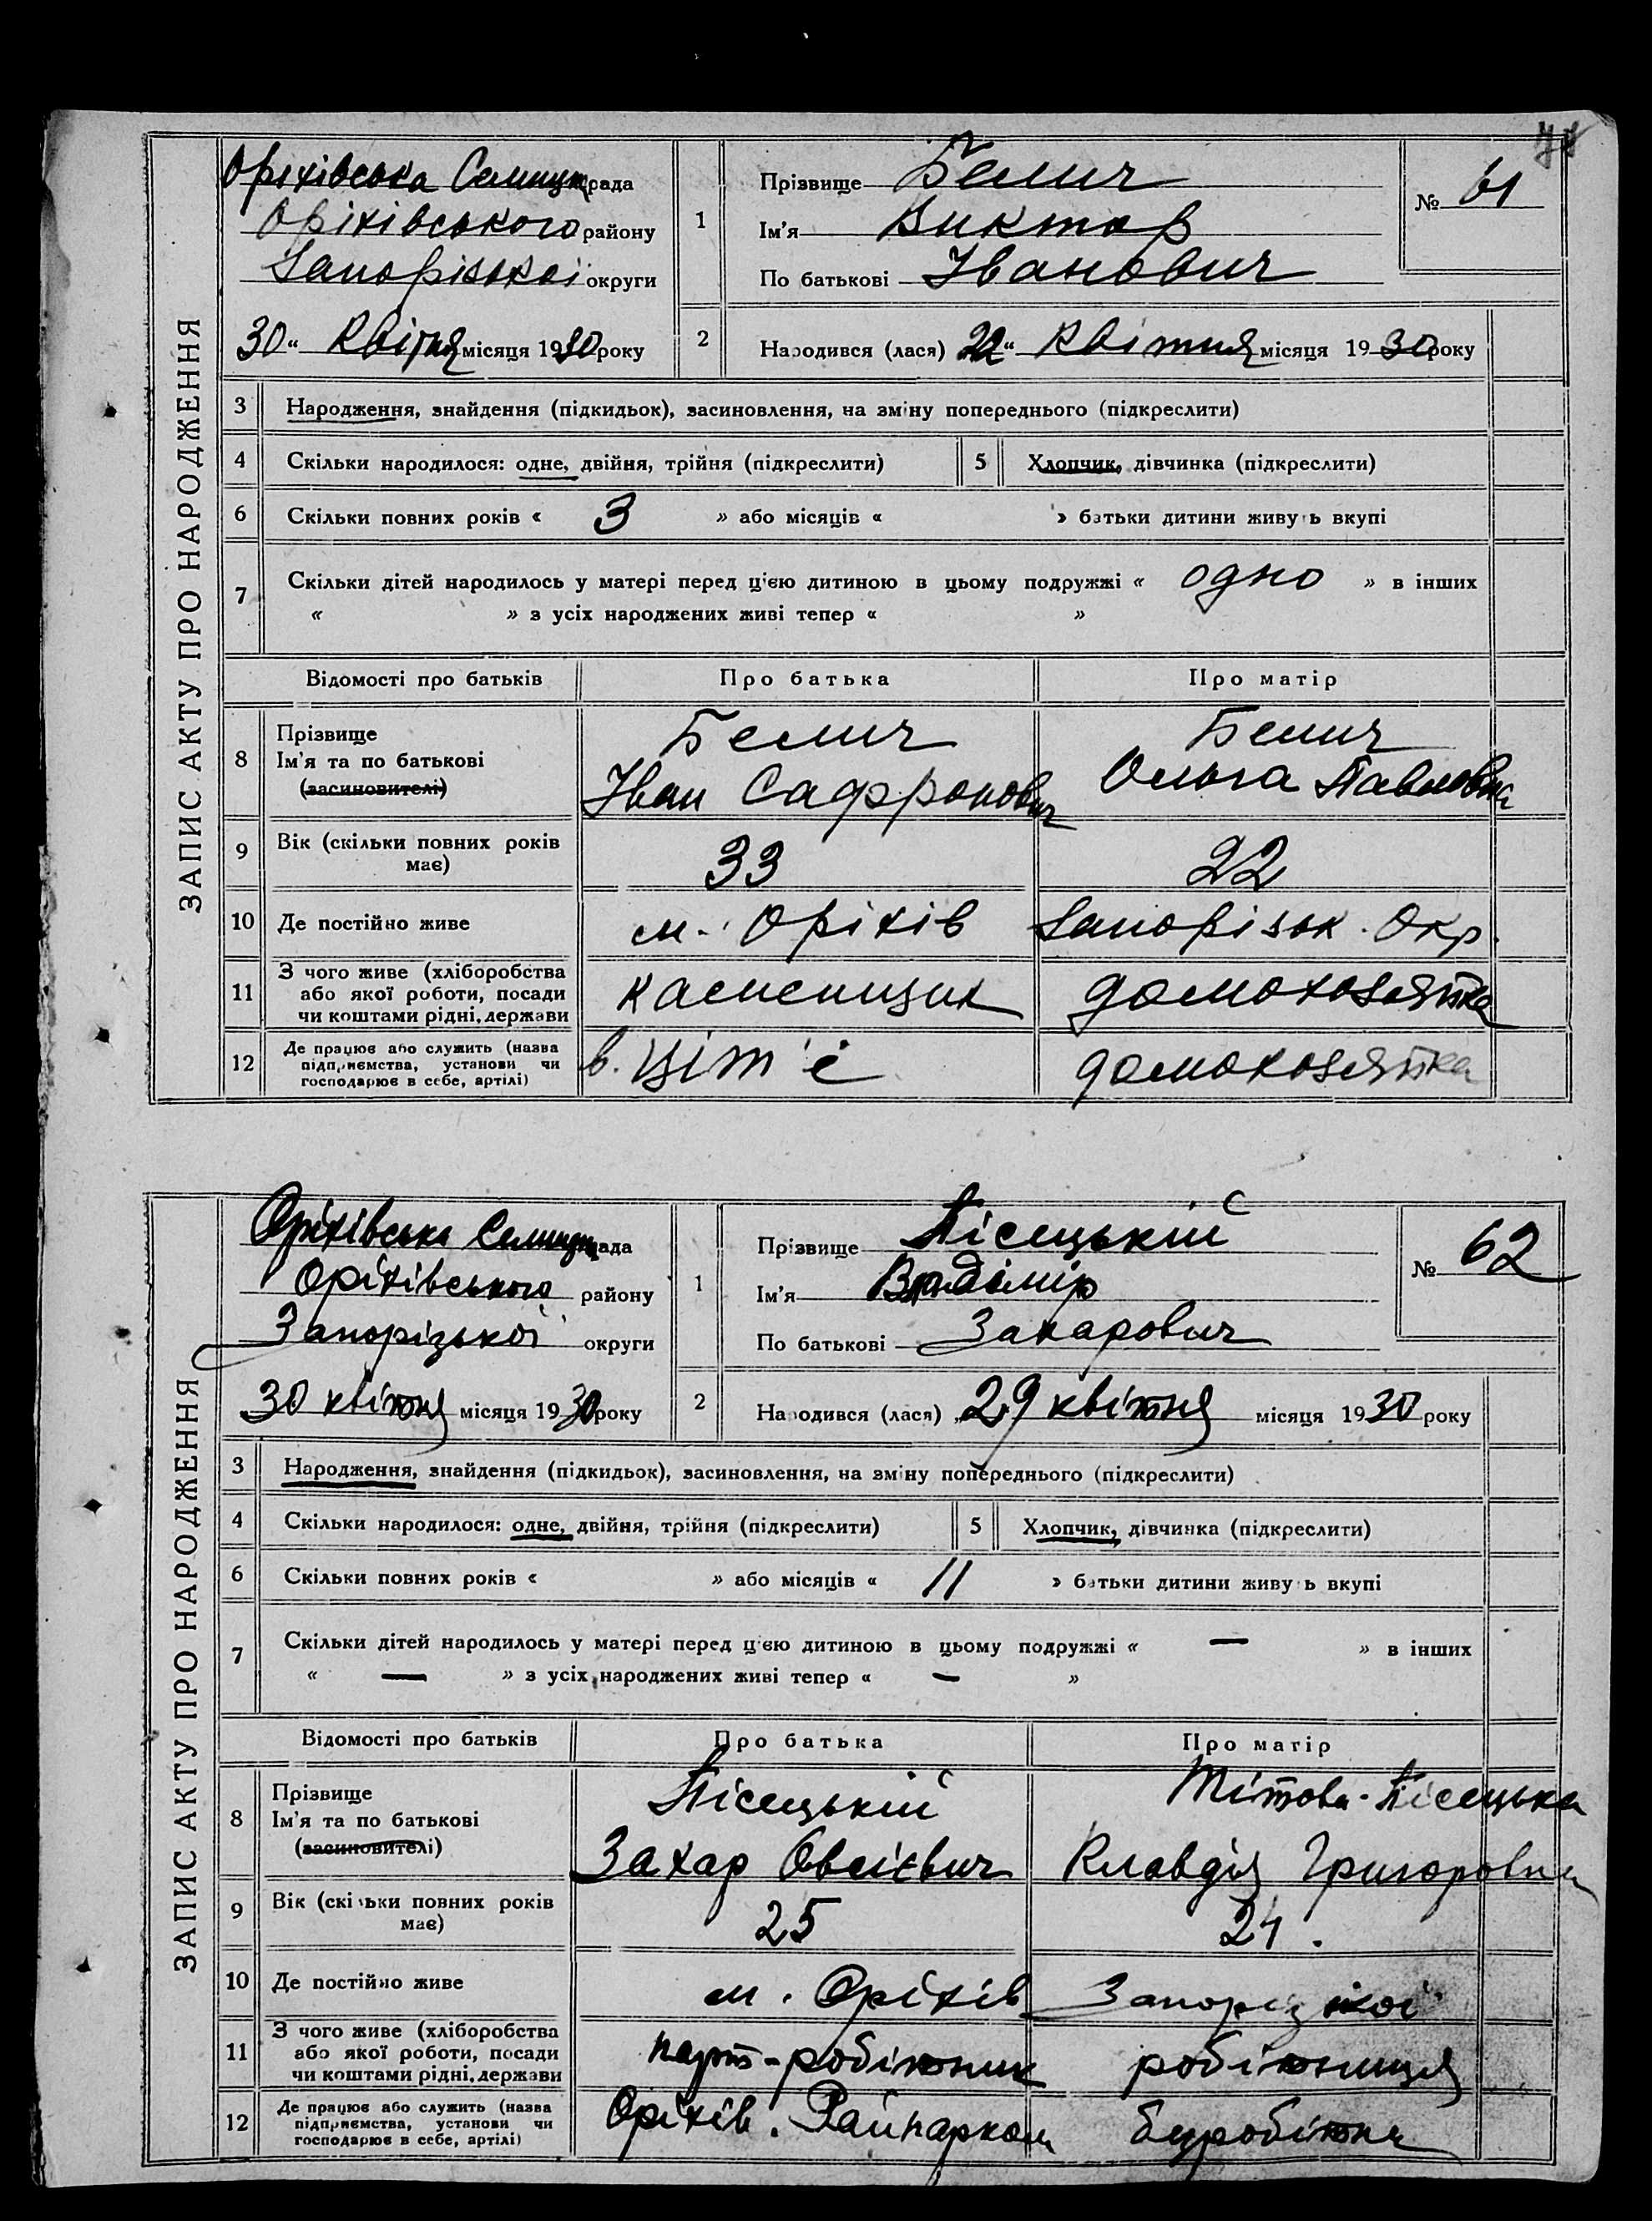 ЗАПИС АКТУ ПРО НАРОДЖЕННЯ
Оріхівська Селищ рада
Оріхівського району
Запорізької округи
30 " Квітня місяця 1930 року
1 Прізвище Белич
Ім'я Виктор
По батькові Іванович
№ 61
2 Народився (лася) 22 " Квітня місяця 1930 року
3 Народження, знайдення (підкидьок), засиновлення, на зміну попереднього (підкреслити)
4 Скільки народилося: одне, двійня, трійня (підкреслити) 5 Хлопчик, дівчинка (підкреслити)
6 Скільки повних років « 3 » або місяців « » батьки дитини живуть вкупі
7 Скільки дітей народилось у матері перед цією дитиною в цьому подружжі « одно » в інших
« » з усіх народжених живі тепер « »
Відомості про батьків Про батька Про матір
8 Прізвище Ім'я та по батькові (засиновителі)
Белич Іван Сафронович
Белич Ольга Павловна
9 Вік (скільки повних років має) 33 22
10 Де постійно живе м. Оріхів Запорізьк. Окр.
11 З чого живе (хліборобства або якої роботи, посади чи коштами рідні, держави
каменщик домохозяйка
12 Де працює або служить (назва підприємства, установи чи господарює в себе, артілі)
домохозяйка
ЗАПИС АКТУ ПРО НАРОДЖЕННЯ
Оріхівська Селищ рада
Оріхівського району
Запорізької округи
30 квітня місяця 1930 року
1 Прізвище Пісецькій
Ім'я Владімір
По батькові Захарович
№ 62
2 Народився (лася) „ 29 квітня місяця 1930 року
3 Народження, знайдення (підкидьок), засиновлення, на зміну попереднього (підкреслити)
4 Скільки народилося: одне, двійня, трійня (підкреслити) 5 Хлопчик, дівчинка (підкреслити)
6 Скільки повних років « » або місяців « 11 » батьки дитини живуть вкупі
7 Скільки дітей народилось у матері перед цією дитиною в цьому подружжі « — » в інших
« — » з усіх народжених живі тепер « — »
Відомості про батьків Про батька Про матір
8 Прізвище Ім'я та по батькові (засиновителі)
Пісецькій Захар Овсієвич
Тітова-Пісецька Клавдія Григоровна
9 Вік (скільки повних років має) 25 21.
10 Де постійно живе м. Оріхів Запорізької
11 З чого живе (хліборобства або якої роботи, посади чи коштами рідні, держави
парт-робітник робітниця
12 Де працює або служить (назва підприємства, установи чи господарює в себе, артілі)
Оріхів. Райпарком безробітна